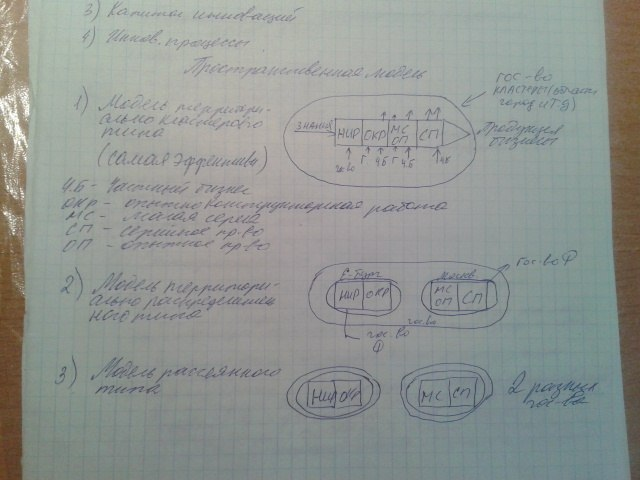 3) Капитал инноваций
4) Иннов. процессы
Пространственная модель
1) Модель террито-
риально кластерного
типа
(самая эффективна)
гос-во
кластерс (область
город и т д)
знания
НИР ОКР МС ОП СП
Продукция
гос-во Г ч.Б Г ч.Б ч.Б
ч.Б - частный бизнес
ОКР - опытно конструкторская работа
МС - малая серия
СП - серийное пр-во
ОП - опытное пр-во
2) Модель террито-
риально распределен-
ного типа
Е-бург
НИР ОКР
Москва
МС ОП СП
гос-во Ф
гос-во
гос-во
Ф
3) Модель рассеянного
типа
НИР ОКР
МС СП
2 разных
гос-ва